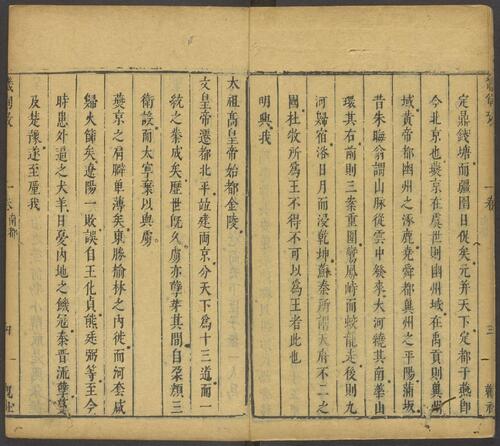 定鼎錢塘而疆圉日促矣元并天下定都于燕卽
今北京也燕京在虞世則幽州域在禹貢則冀州
域黃帝都幽州之涿鹿堯舜都冀州之平陽蒲坂
昔朱晦翁謂山脉從雲中發來大河繞其南華山
環其右前則三案重圍鸞鳳峙而蛟龍走後則九
河歸宿浴日月而浸乾坤蘇秦所謂天府不二之
國杜牧所爲王不得不可以爲王者此也
明興我
太祖高皇帝始都金陵
文皇帝遷都北平竝建兩京分天下爲十三道而一
統之業成矣歷世旣久虜亦孽芽其間自朶顏三
衛設而大寧棄以與虜
燕京之肩髀單薄矣東勝榆林之內徙而河套咸
歸火篩矣遼陽一敗誤自王化貞熊廷弼等至今
時患外逼之犬羊日憂內地之饑寇秦晋流孽蔓
及楚豫遂至歷我
南都
四
三